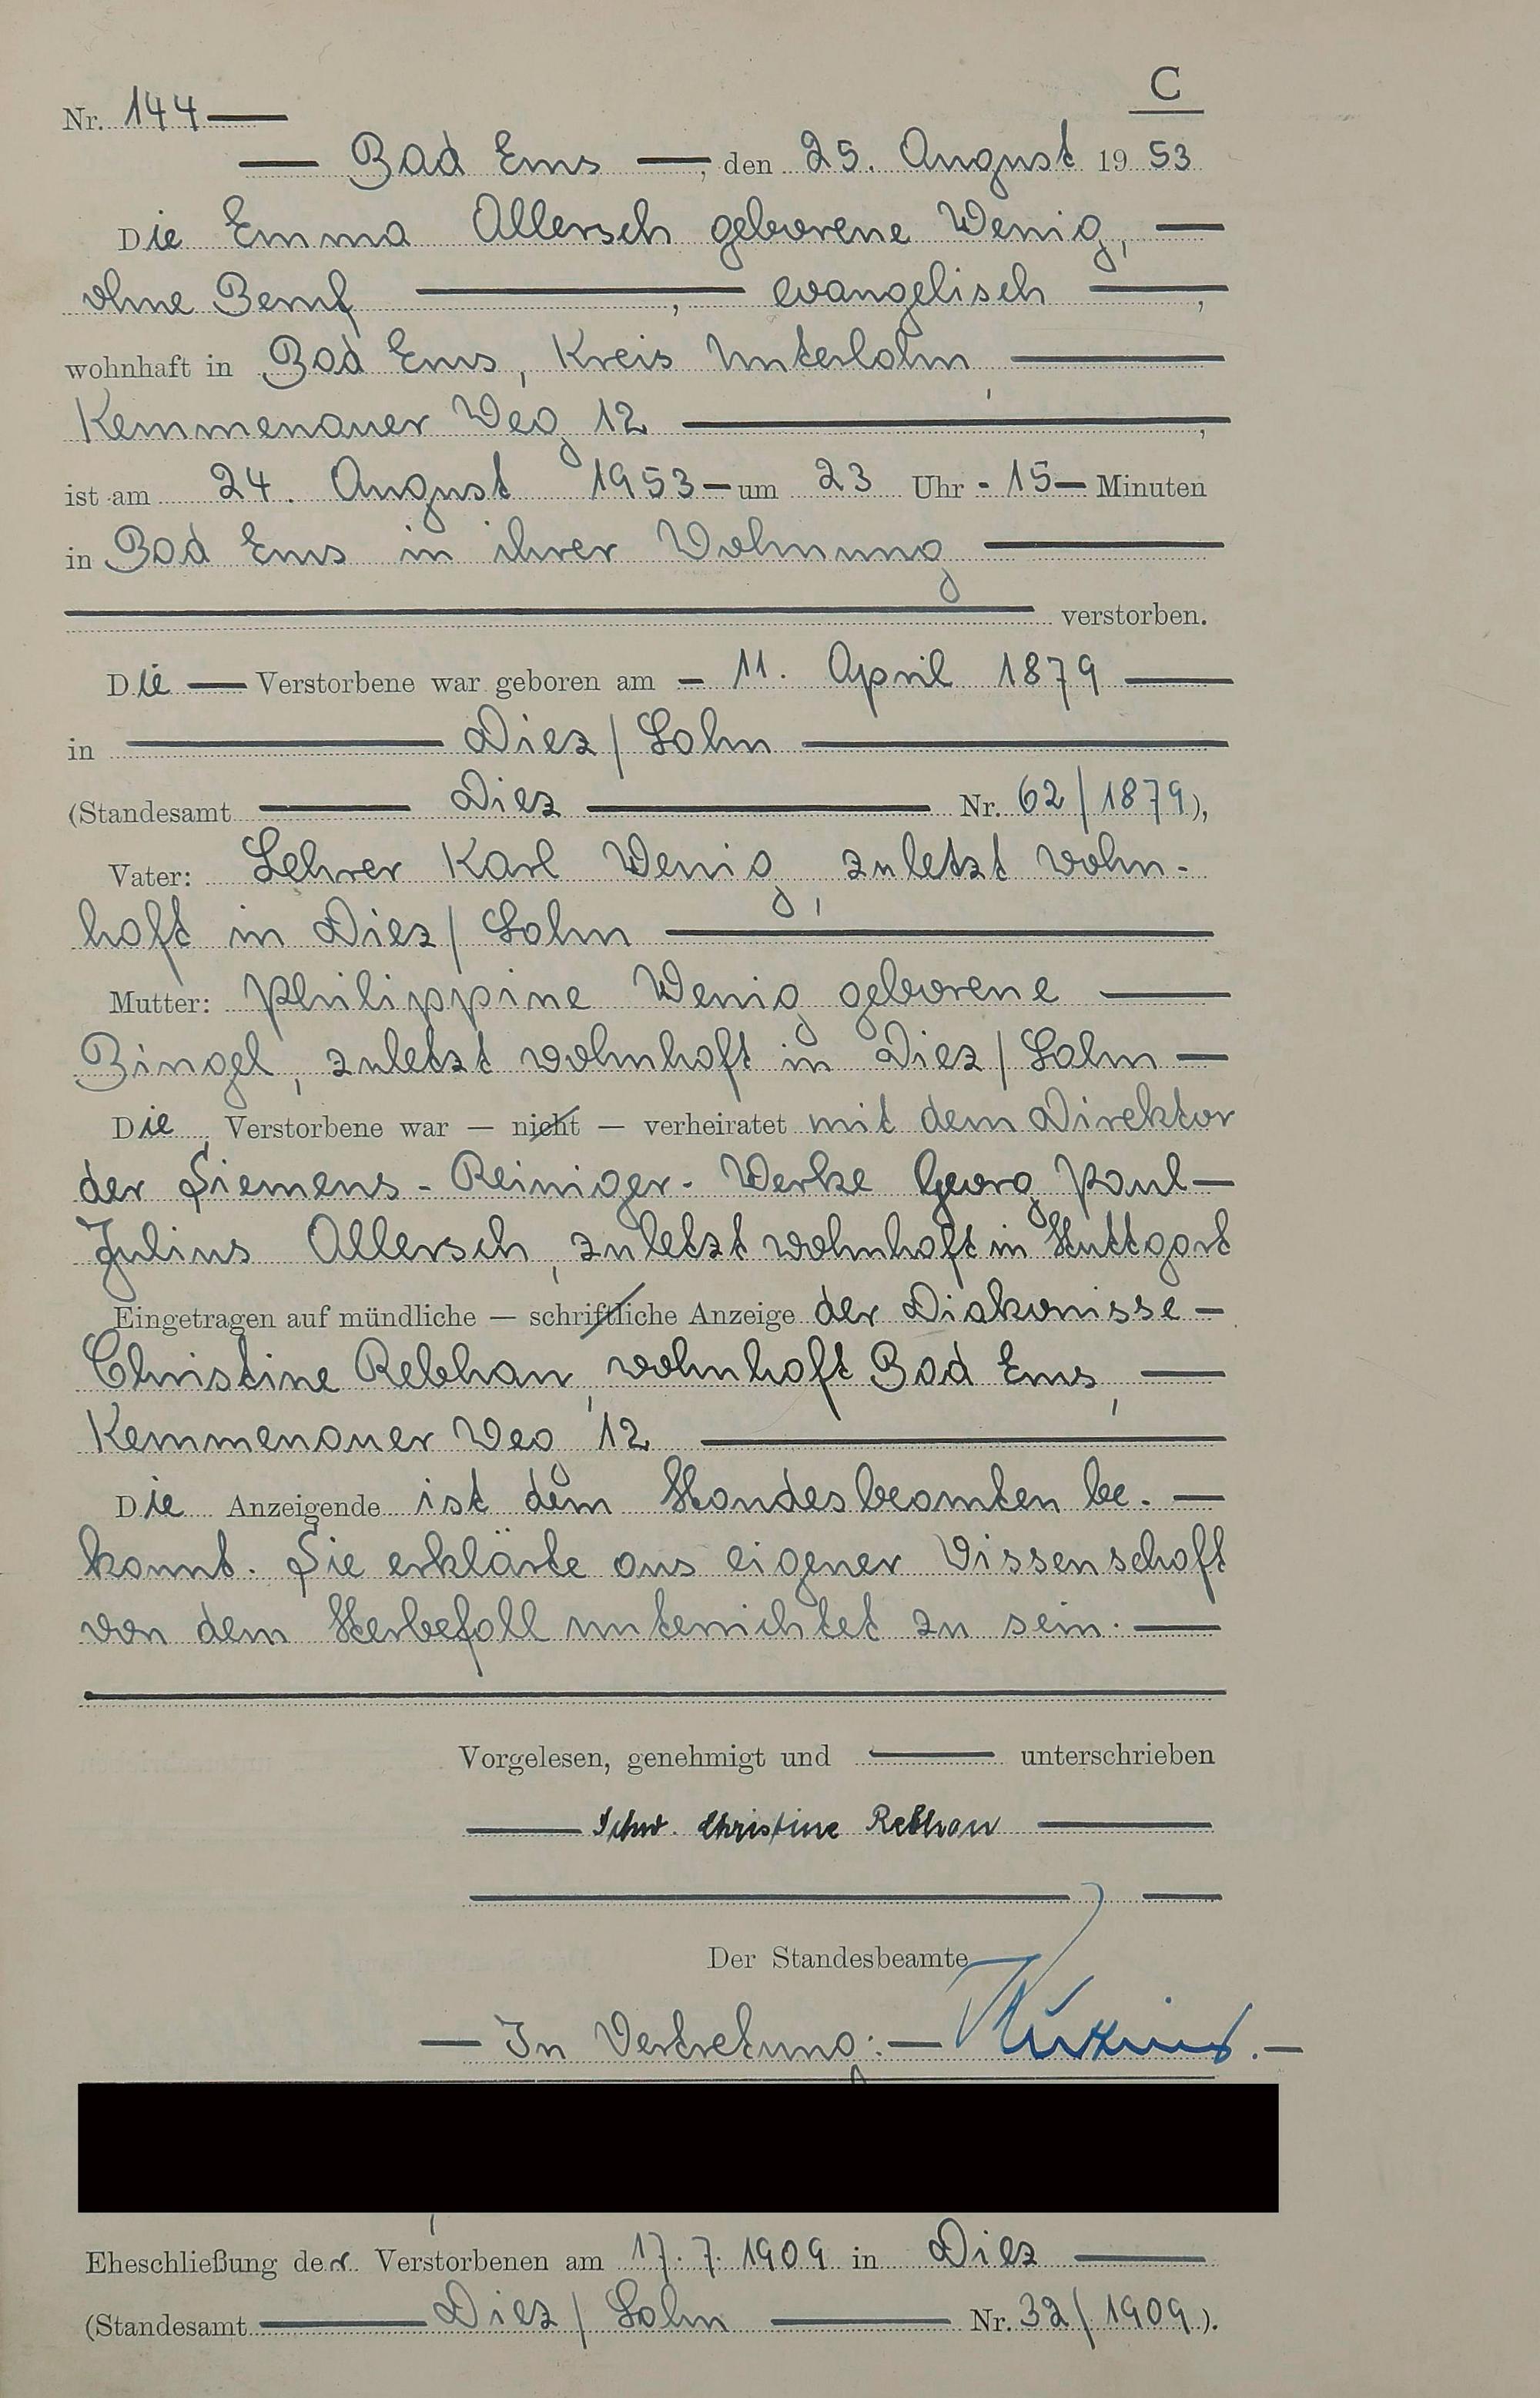 C
Nr. 144
Bad Ems, den 25. August 1953
Die Emma Allersch geborene Wenig,
ohne Beruf, evangelisch,
wohnhaft in Bad Ems, Kreis Unterlahn,
Kemmenauer Weg 12,
ist am 24. August 1953 um 23 Uhr 15 Minuten
in Bad Ems in ihrer Wohnung
verstorben.
Die Verstorbene war geboren am 11. April 1879
in Diez/Lahn
(Standesamt Diez Nr. 62/1879),
Vater: Lehrer Karl Wenig, zuletzt wohn-
haft in Diez/Lahn
Mutter: Philippine Wenig geborene
Bingel, zuletzt wohnhaft in Diez/Lahn
Die Verstorbene war — nicht — verheiratet mit dem Direktor
der Siemens-Reiniger-Werke Georg Paul
Julius Allersch, zuletzt wohnhaft in Stuttgart
Eingetragen auf mündliche — schriftliche Anzeige der Diakonisse
Christine Rebhan, wohnhaft Bad Ems,
Kemmenauer Weg 12
Die Anzeigende ist dem Standesbeamten be-
kannt. Sie erklärte aus eigener Wissenschaft
von dem Sterbefall unterrichtet zu sein.
Vorgelesen, genehmigt und unterschrieben
Schw. Christine Rebhan
Der Standesbeamte
In Vertretung:
Eheschließung der Verstorbenen am 17.7.1909 in Diez
(Standesamt Diez/Lahn Nr. 32/1909).